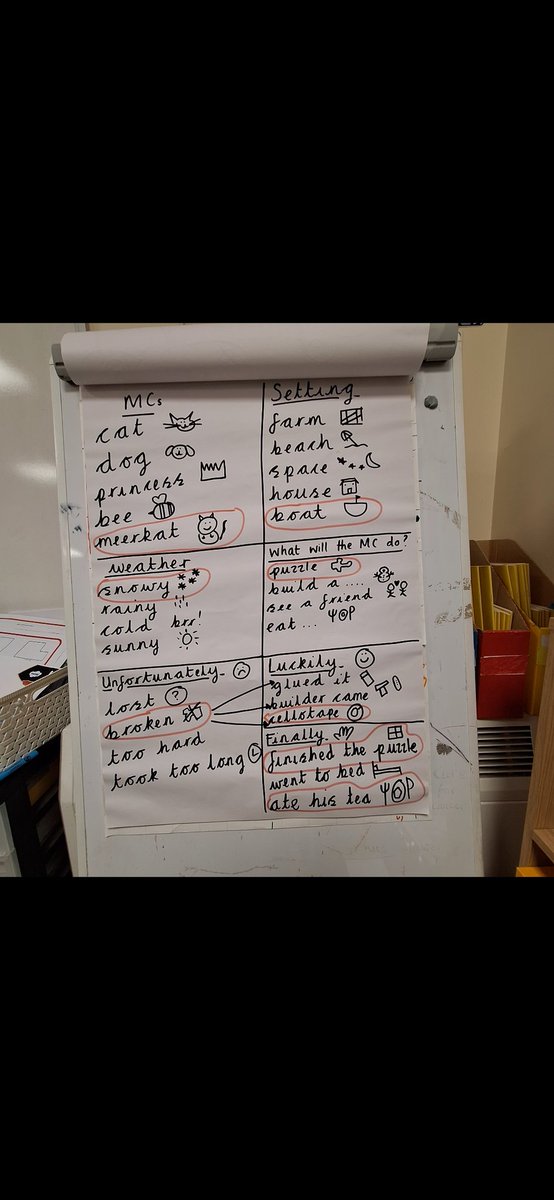 MCs
cat
dog
princess
bee
meerkat
Setting
farm
beach
space
house
boat
weather
snowy
rainy
cold brr!
sunny
What will the MC do?
puzzle
build a ....
see a friend
eat ...
Unfortunately
lost ?
broken
too hard
took too long
Luckily
glued it
builder came
cellotape
Finally
finished the puzzle
went to bed
ate his tea